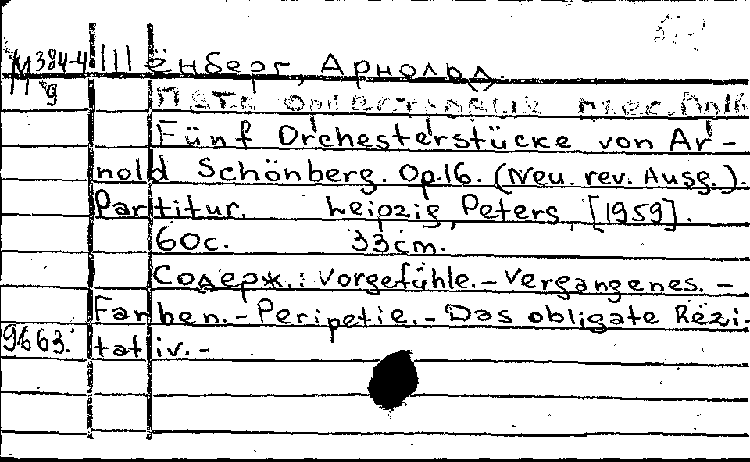 М 384-4 Шёнберг, Арнольд
9 Пять оркестровых пьес. Op.16
Fünf Orchesterstücke von Ar-
nold Schönberg. Op.16. (Neu. rev. Ausg.).
Partitur. Leipzig, Peters, [1959].
60с. 33cm.
Содерж.: Vorgefühle. - Vergangenes. -
Farben. - Peripetie. - Das obligate Rezi-
9663. tativ. -